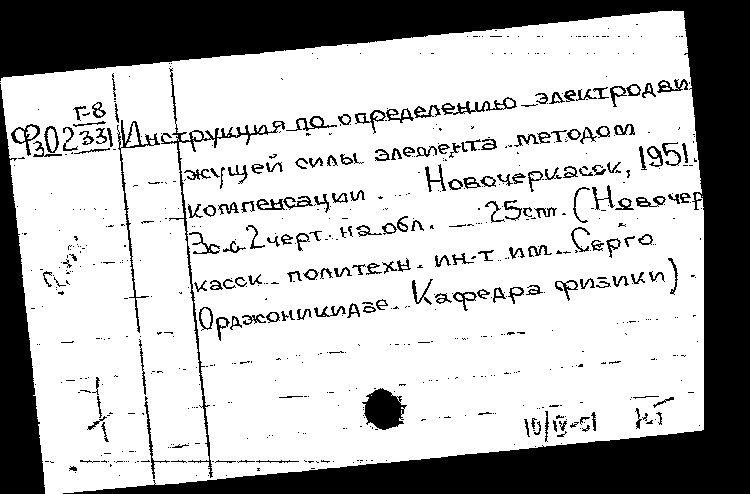 Г-8
Ф302331 Инструкция по определению электродви
жущей силы элемента методом
компенсации. Новочеркасск, 1951.
3 с. с 2 черт. на обл. 25 спт. (Новочер
касск. политехн. ин-т им. Серго
Орджоникидзе. Кафедра физики).
10/IV-51